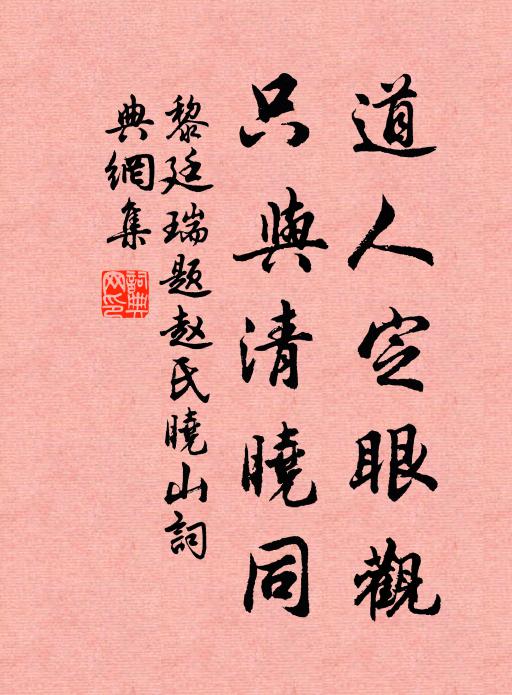 道人定眼觀
只與清曉同
黎廷瑞題赵氏曉山詞
典網集
詞典網印